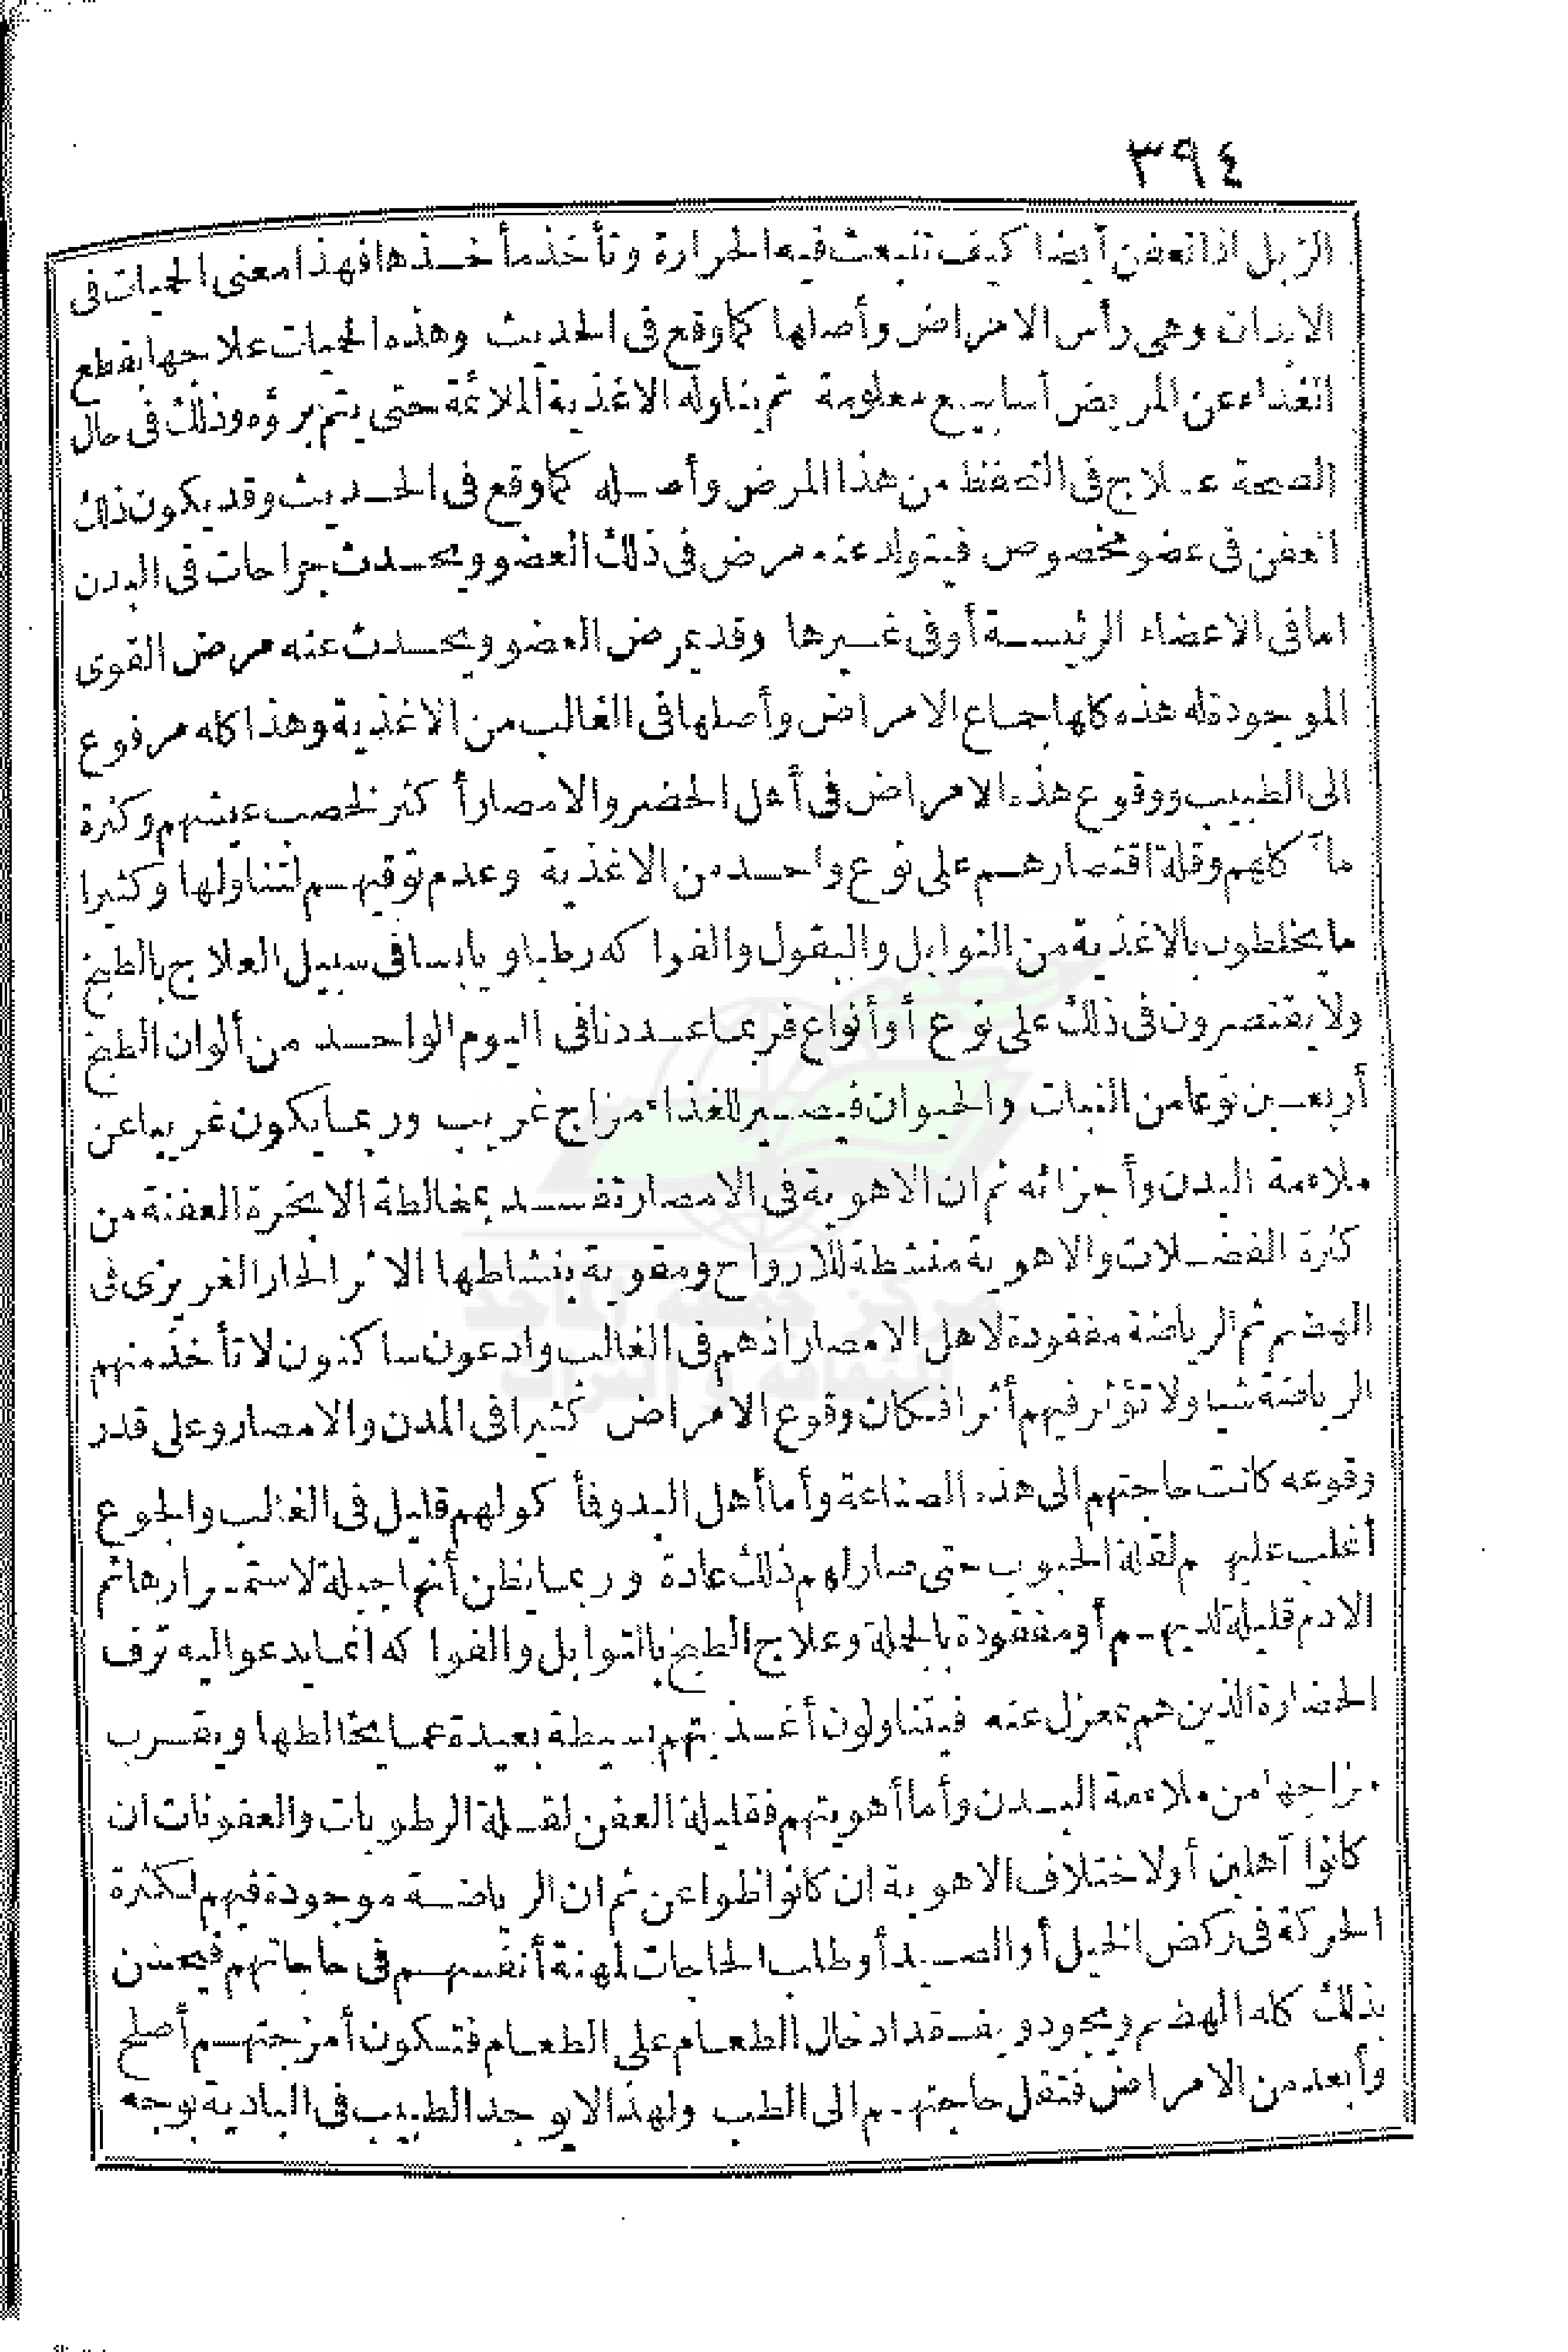 ٣٩٤
الزبل اذا تعفن أيضا كيف تنبعث فيه الحرارة وتأخذ مأخذها فهذا معنى الحميات فى
الابدان وهى رأس الامراض وأصلها كما وقع فى الحديث وهذه الحميات علاجها بقطع
الغذاء عن المريض أسابيع معلومة ثم يناوله الاغذية الملائمة حتى يتم برؤه وذلك فى حال
الصحة علاج فى التحفظ من هذا المرض وأصله كما وقع فى الحديث وقد يكون ذلك
العفن فى عضو مخصوص فيتولد عنه مرض فى ذلك العضو ويحدث جراحات فى البدن
اما فى الاعضاء الرئيسة أو فى غيرها وقد يمرض العضو ويحدث عنه مرض القوى
الموجودة له هذه كلها جماع الامراض وأصلها فى الغالب من الاغذية وهذا كله مرفوع
الى الطبيب ووقوع هذه الامراض فى أهل الحضر والامصار أكثر لخصب عيشهم وكثرة
مآكلهم وقلة اقتصارهم على نوع واحد من الاغذية وعدم توقيهم لتناولها وكثيرا
ما يخلطون بالاغذية من التوابل والبقول والفواكه رطبا ويابسا فى سبيل العلاج بالطبخ
ولا يقتصرون فى ذلك على نوع أو أنواع فربما عددنا فى اليوم الواحد من ألوان الطبخ
أربعين نوعا من النبات والحيوان فيصير للغذاء مزاج غريب وربما يكون غريبا عن
ملاءمة البدن وأجزائه ثم ان الاهوية فى الامصار تفسد بمخالطة الابخرة العفنة من
كثرة الفضلات والاهوية منشطة للارواح ومقوية بنشاطها الاثر الحار الغريزى فى
الهضم ثم الرياضة مفقودة لاهل الامصار اذ هم فى الغالب وادعون ساكنون لا تأخذ منهم
الرياضة شيا ولا تؤثر فيهم أثرا فكان وقوع الامراض كثيرا فى المدن والامصار وعلى قدر
وقوعه كانت حاجتهم الى هذه الصناعة وأما أهل البدو فمأكولهم قليل فى الغالب والجوع
أغلب عليهم لقلة الحبوب حتى صار لهم ذلك عادة وربما يظن أنها جبلة لاستمرارها ثم
الادم قليلة لديهم أو مفقودة بالجملة وعلاج الطبخ بالتوابل والفواكه انما يدعو اليه ترف
الحضارة الذين هم بمعزل عنه فيتناولون أغذيتهم بسيطة بعيدة عما يخالطها ويقرب
مزاجها من ملاءمة البدن وأما أهويتهم فقليلة العفن لقلة الرطوبات والعفونات ان
كانوا آهلين أو لاختلاف الاهوية ان كانوا ظواعن ثم ان الرياضة موجودة فيهم لكثرة
الحركة فى ركض الخيل أو الصيد أو طلب الحاجات لمهنة أنفسهم فى حاجاتهم فيحسن
بذلك كله الهضم ويجود ويفقد ادخال الطعام على الطعام فتكون أمزجتهم أصلح
وأبعد من الامراض فتقل حاجتهم الى الطب ولهذا لا يوجد الطبيب فى البادية بوجه
مركز جمعة الماجد
للثقافة و التراث